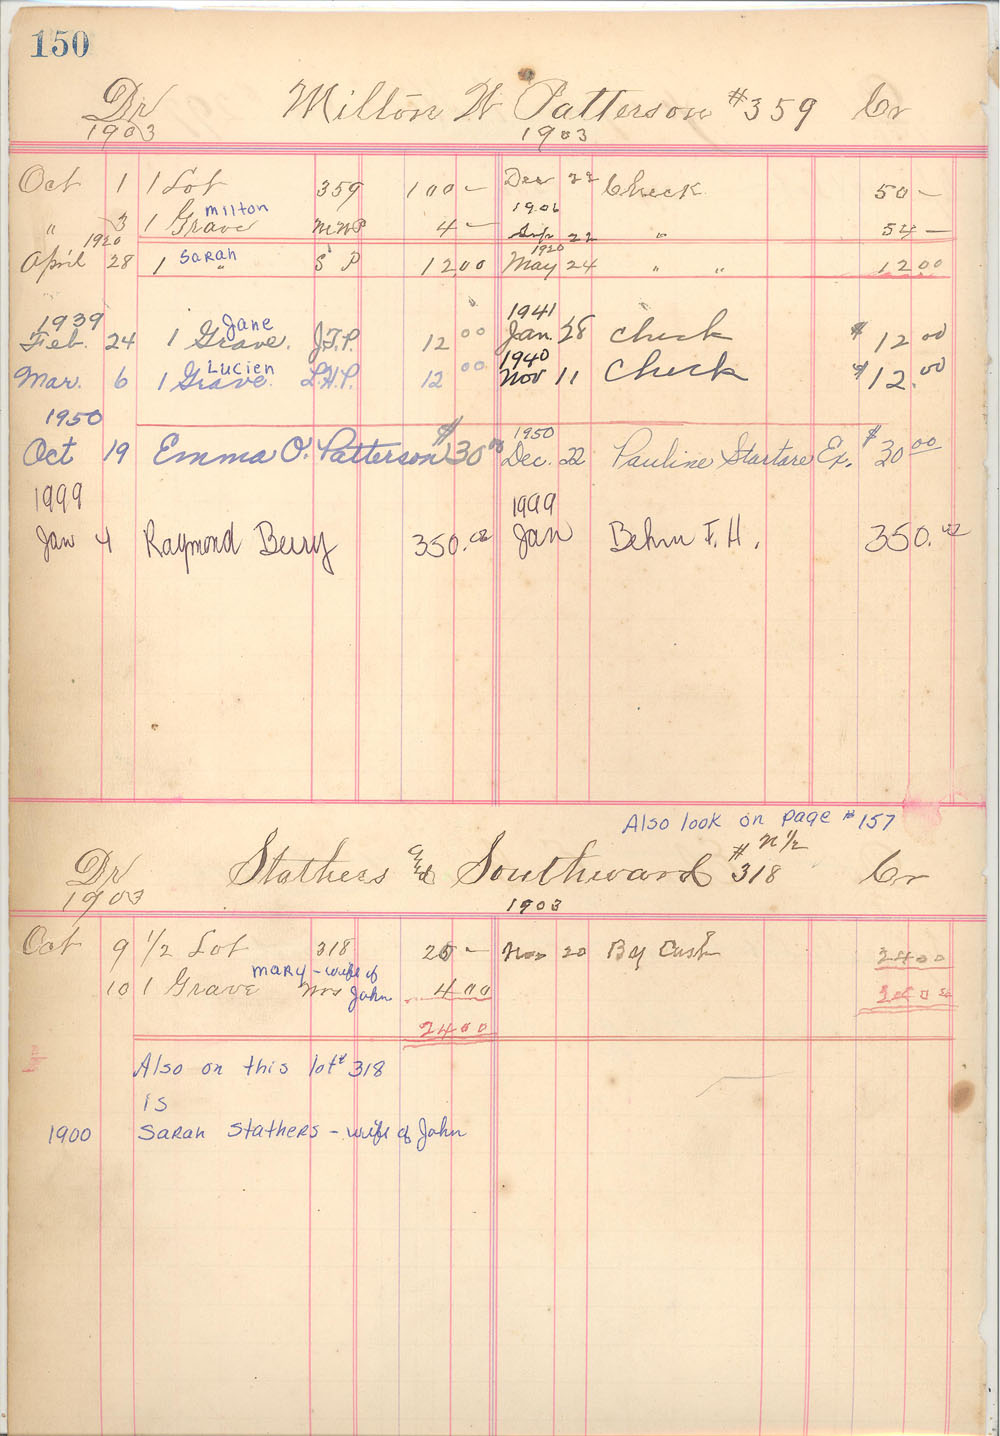 150
Dr Milton W Patterson #359 Cr
1903 1903
Oct 1 1 Lot 359 100 — Dec 22 Check 50 —
Milton 1906
" 3 1 Grave MWP 4 — Sep 22 " 54 —
1920 Sarah 1920
April 28 1 " S P 12 00 May 24 " " 12 00
1939 Jane 1941
Feb. 24 1 Grave. J.T.P. 12 00 Jan. 28 check $ 12 00
Lucien 1940
Mar. 6 1 Grave. L.H.P. 12 00 Nov 11 Check $12.00
1950 1950
Oct 19 Emma O. Patterson $30 00 Dec. 22 Pauline Startare Ex. $ 30 00
1999 1999
Jan 4 Raymond Berry 350.00 Jan Behm F. H. 350.00
Also look on page # 157
Dr Stathers and Southward # 318 N 1/2 Cr
1903 1903
Oct 9 1/2 Lot 318 20 — Nov 20 By Cash 24 00
Mary - wife of
10 1 Grave Mrs John 4 00 24 00
24 00
Also on this lot # 318
is
1900 Sarah Stathers - wife of John